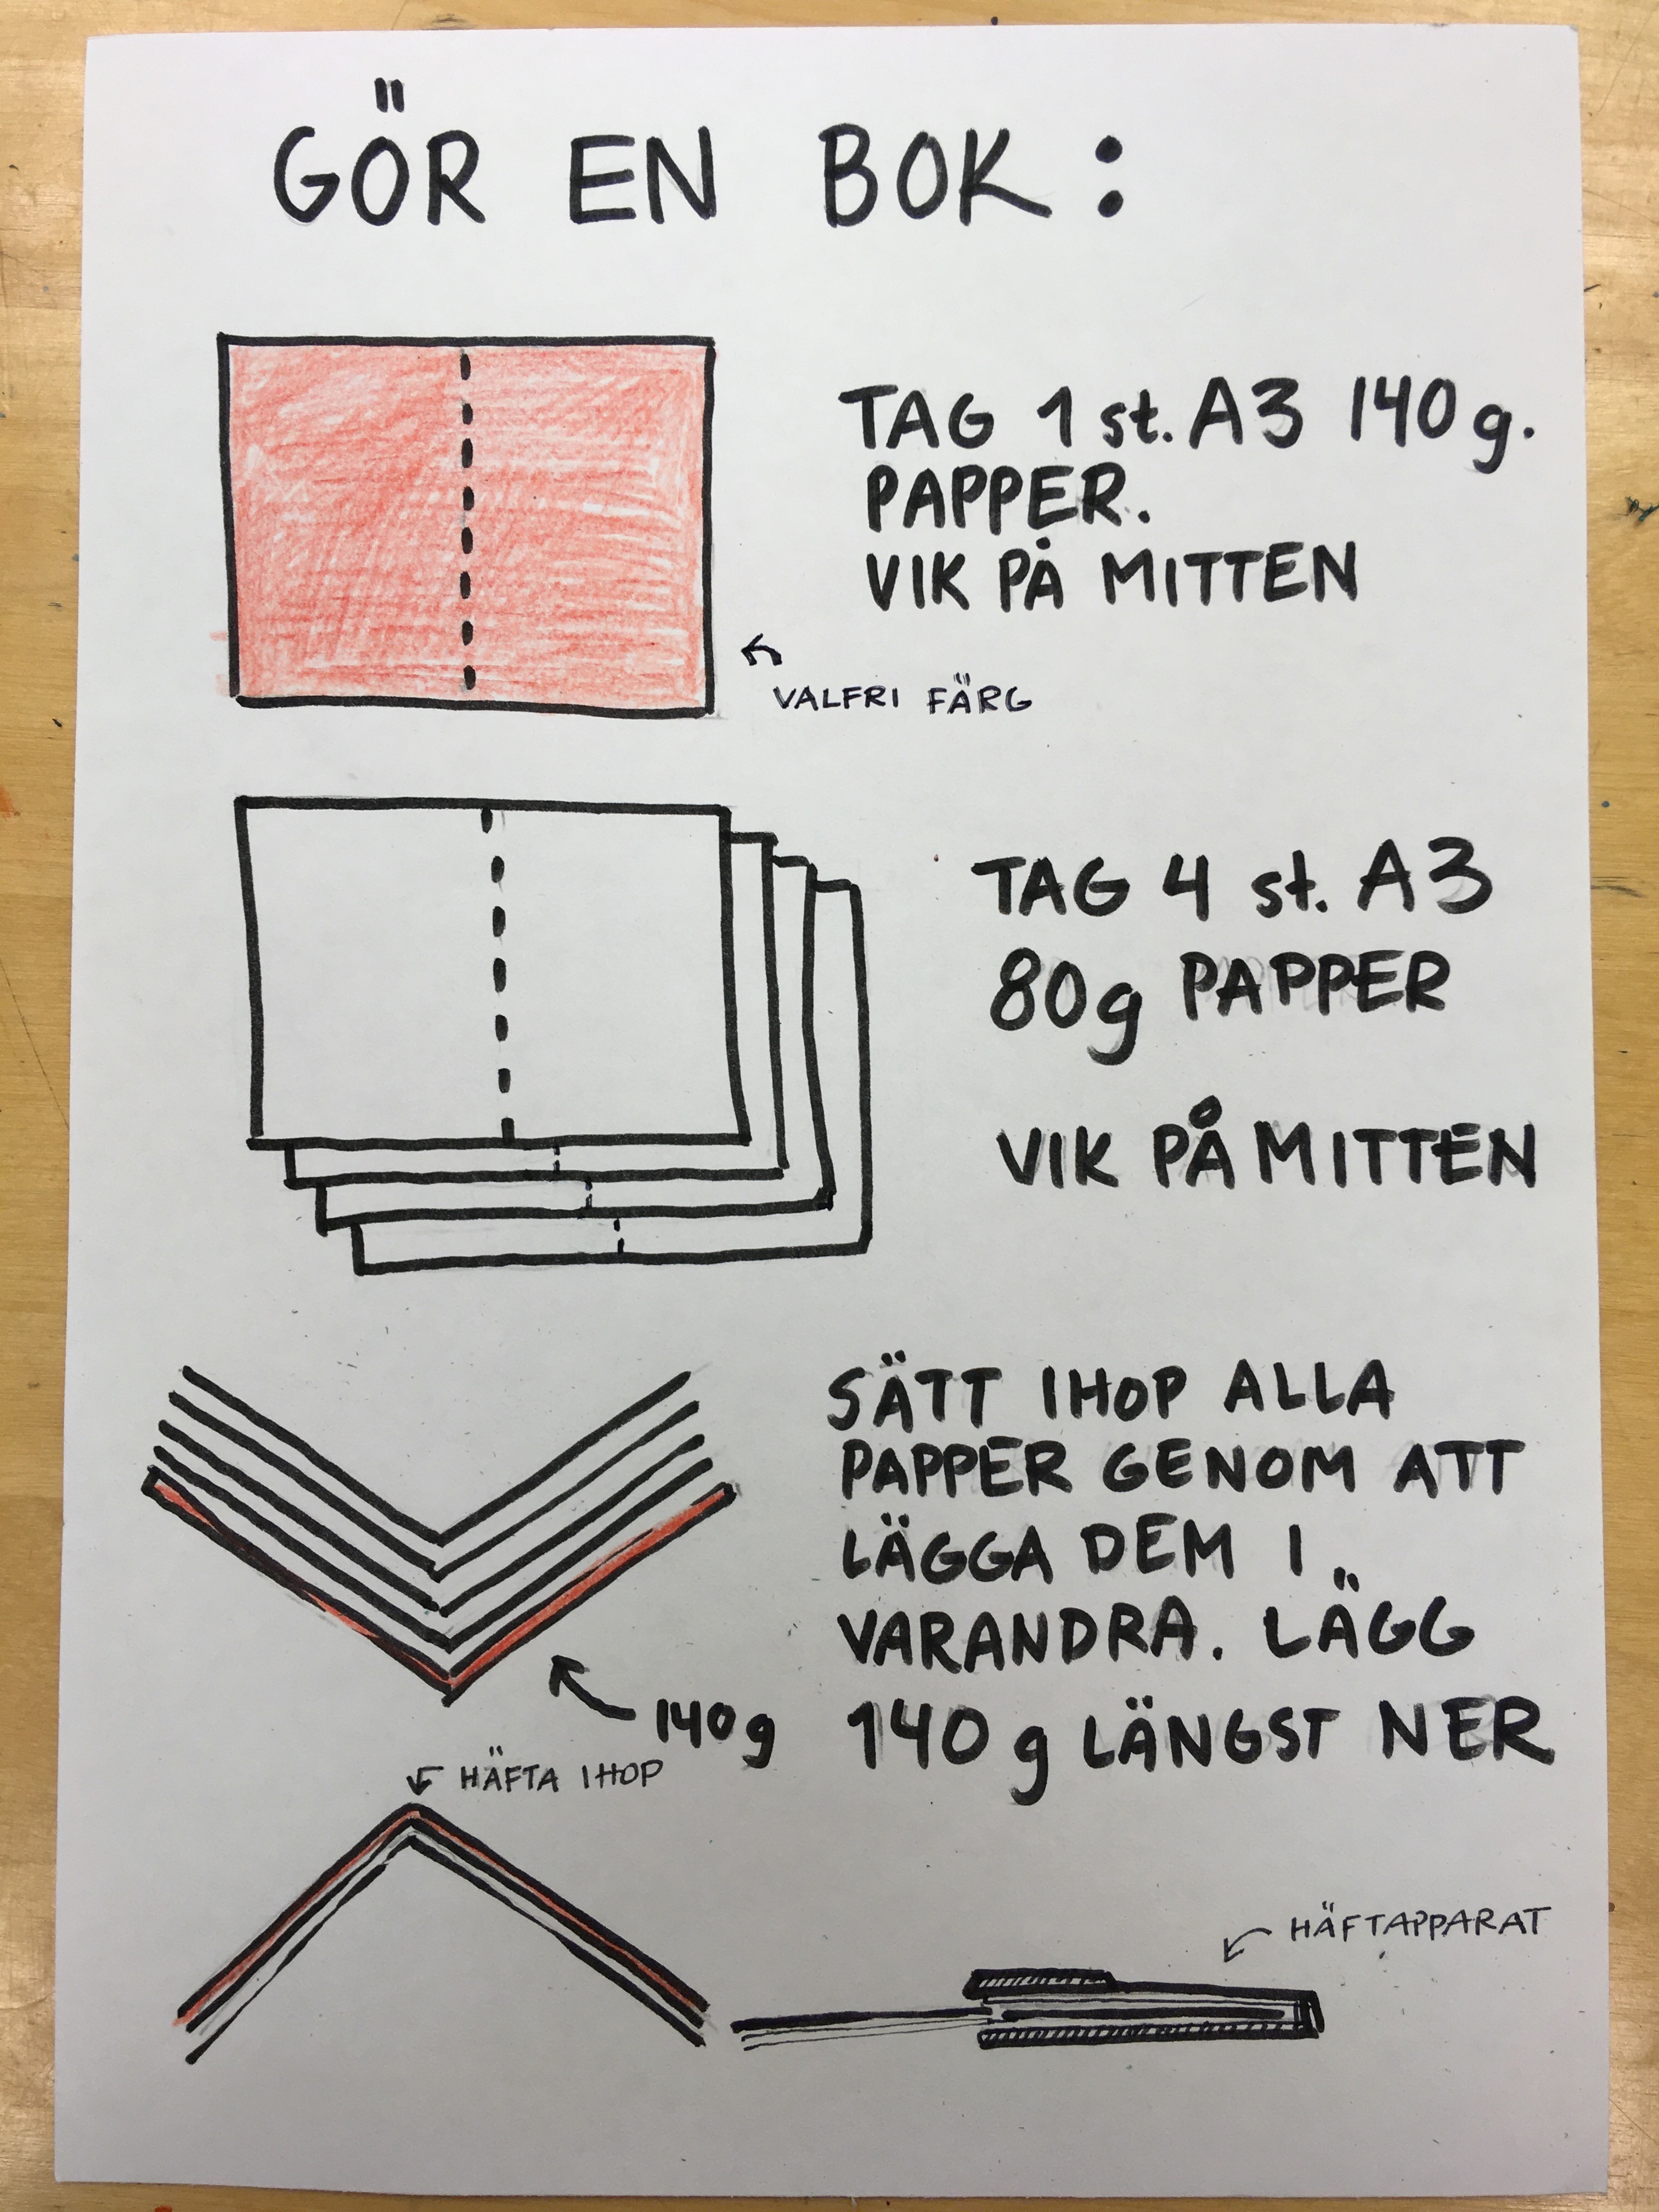 GÖR EN BOK:
TAG 1 st. A3 140 g.
PAPPER.
VIK PÅ MITTEN
VALFRI FÄRG
TAG 4 st. A3
80g PAPPER
VIK PÅ MITTEN
SÄTT IHOP ALLA
PAPPER GENOM ATT
LÄGGA DEM I
VARANDRA. LÄGG
140 g LÄNGST NER
140g
HÄFTA IHOP
HÄFTAPPARAT